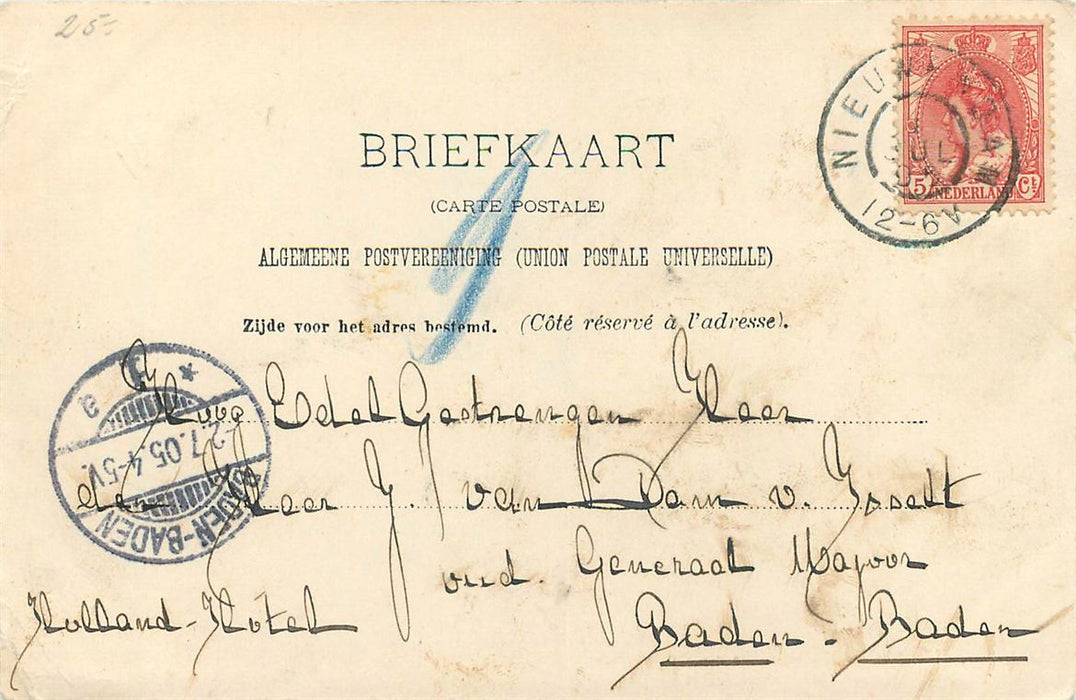 25-
NIEUW
JUL
12-6V
5 NEDERLAND Ct
BRIEFKAART
(CARTE POSTALE)
ALGEMEENE POSTVEREENIGING (UNION POSTALE UNIVERSELLE)
Zijde voor het adres bestemd. (Côté réservé à l'adresse).
BADEN-BADEN
2.7.05.4-5V.
* a
Hoog Edel Gestrengen Heer
den Heer J. van Dam v. Isselt
oud Generaal Majoor
Holland-Hotel Baden-Baden